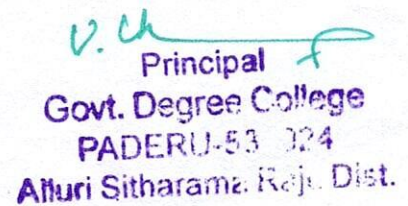 V. Ch
Principal
Govt. Degree College
PADERU-53 024
Alluri Sitharama Raju Dist.